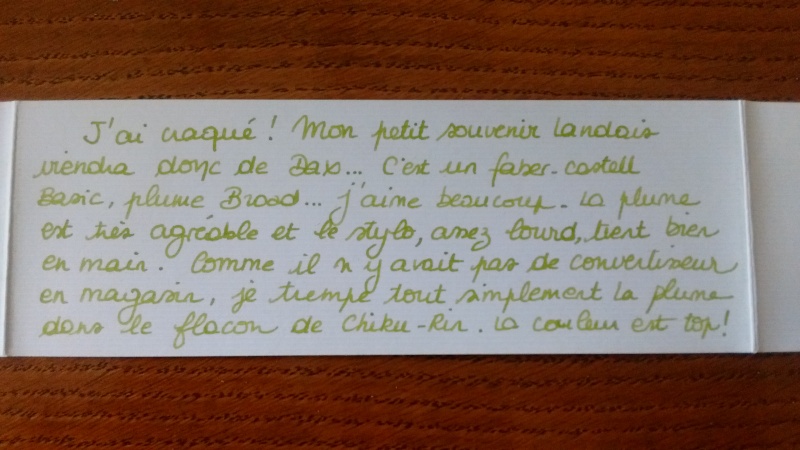 J'ai craqué ! Mon petit souvenir landais
viendra donc de Dax... C'est un faber-castell
Basic, plume Broad... j'aime beaucoup. La plume
est très agréable et le stylo, assez lourd, tient bien
en main. Comme il n'y avait pas de convertisseur
en magasin, je trempe tout simplement la plume
dans le flacon de Chiku-Rin. La couleur est top !